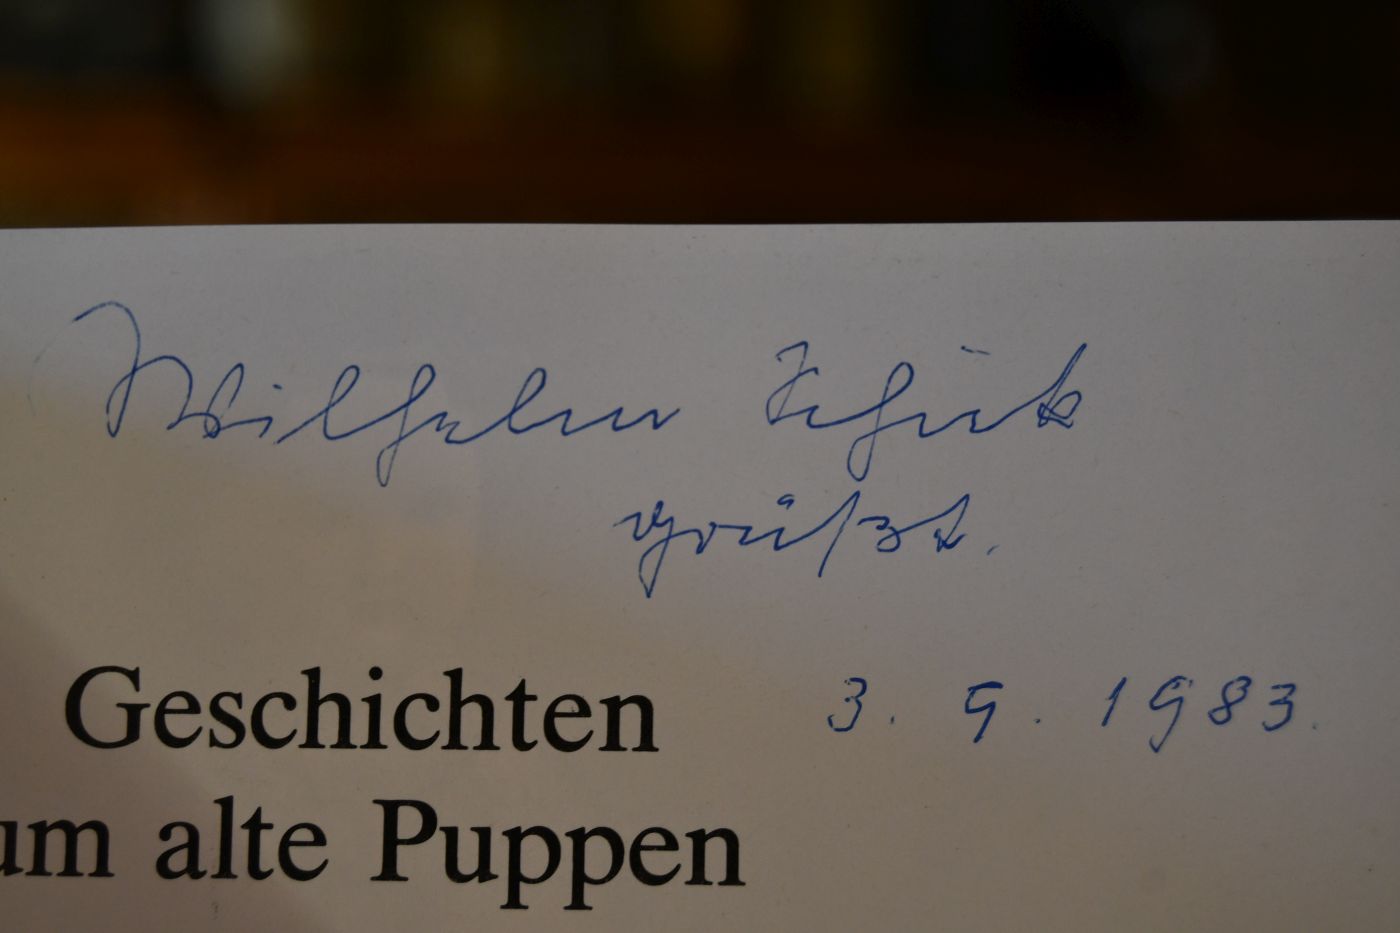 Wilhelm
grüßt.
3. 9. 1983.
Geschichten
um alte Puppen